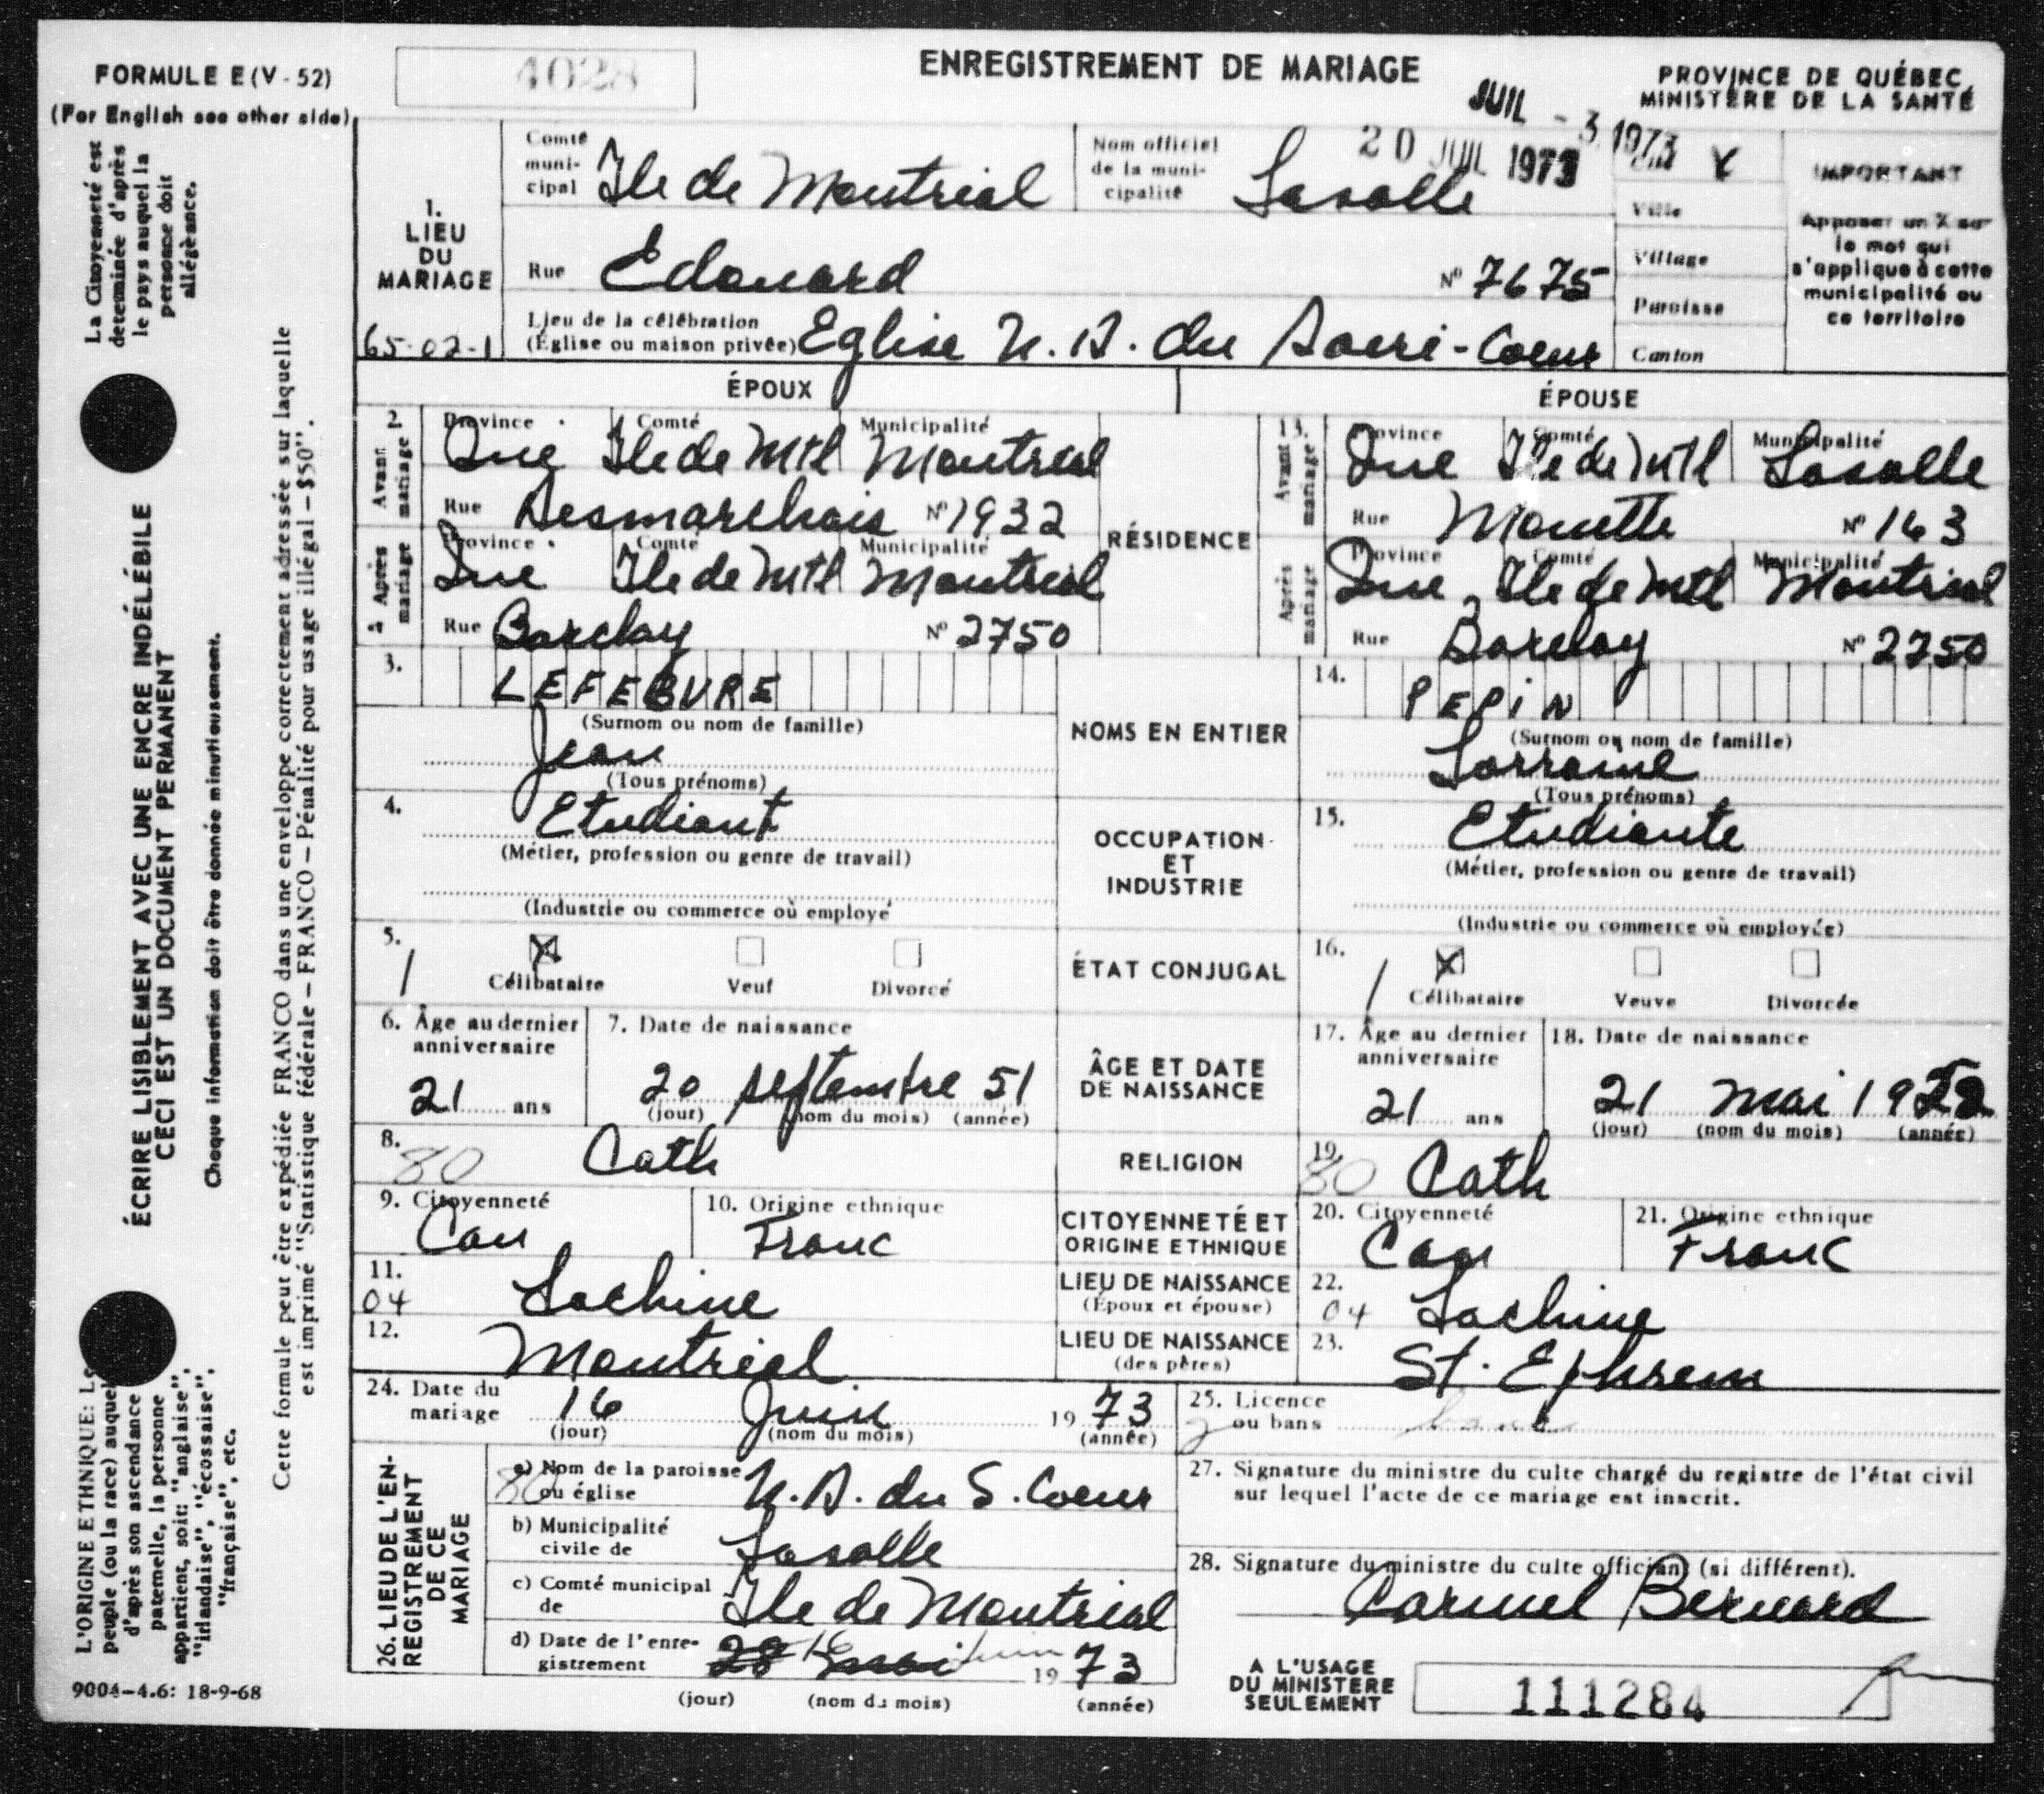 FORMULE E (V - 52)
4028
ENREGISTREMENT DE MARIAGE
PROVINCE DE QUÉBEC
MINISTÈRE DE LA SANTÉ
(For English see other side)
JUIL - 3 1973
20 JUIL 1973
La Citoyenneté est
determinée d'après
le pays auquel la
personne doit
allégeance.
ÉCRIRE LISIBLEMENT AVEC UNE ENCRE INDÉLÉBILE
CECI EST UN DOCUMENT PERMANENT
Chaque information doit être donnée minutieusement.
Cette formule peut être expédiée FRANCO dans une enveloppe correctement adressée sur laquelle
est imprimé "Statistique fédérale – FRANCO – Pénalité pour usage illégal – $50".
L'ORIGINE ETHNIQUE: Le
peuple (ou la race) auquel
d'après son ascendance
paternelle, la personne
appartient, soit: "anglaise",
"irlandaise", "écossaise",
"française", etc.
9004-4.6: 18-9-68
1.
LIEU
DU
MARIAGE
65-02-1
Comté
muni-
cipal Ile de Montreal
Nom officiel
de la muni-
cipalité Lasalle
Cité X
Ville
Village
Paroisse
Canton
IMPORTANT
Apposer un X sur
le mot qui
s'applique à cette
municipalité ou
ce territoire
Rue Edouard Nº 7675
Lieu de la célébration
(Église ou maison privée) Eglise N. D. du Sacré-Coeur
ÉPOUX
ÉPOUSE
2. Avant mariage
Province Comté Municipalité
Que Ile de Mtl Montreal
Rue Desmarchais Nº 1932
Après mariage
Province Comté Municipalité
Que Ile de Mtl Montreal
Rue Barclay Nº 2750
RÉSIDENCE
13. Avant mariage
Province Comté Municipalité
Que Ile de Mtl Lasalle
Rue Mouette Nº 163
Après mariage
Province Comté Municipalité
Que Ile de Mtl Montreal
Rue Barclay Nº 2750
3. LEFEBVRE
(Surnom ou nom de famille)
Jean
(Tous prénoms)
NOMS EN ENTIER
14. PEPIN
(Surnom ou nom de famille)
Lorraine
(Tous prénoms)
4. Etudiant
(Métier, profession ou genre de travail)
(Industrie ou commerce où employé
OCCUPATION
ET
INDUSTRIE
15. Etudiante
(Métier, profession ou genre de travail)
(Industrie ou commerce où employée)
5. 1
X
Célibataire Veuf Divorcé
ÉTAT CONJUGAL
16. 1
X
Célibataire Veuve Divorcée
6. Âge au dernier
anniversaire
21 ans
7. Date de naissance
20 septembre 51
(jour) (nom du mois) (année)
ÂGE ET DATE
DE NAISSANCE
17. Âge au dernier
anniversaire
21 ans
18. Date de naissance
21 mai 1952
(jour) (nom du mois) (année)
8. 80 Cath
RELIGION
19. 80 Cath
9. Citoyenneté
Can
10. Origine ethnique
Franc
CITOYENNETÉ ET
ORIGINE ETHNIQUE
20. Citoyenneté
Can
21. Origine ethnique
Franc
11.
04 Lachine
LIEU DE NAISSANCE
(Époux et épouse)
22.
04 Lachine
12. Montreal
LIEU DE NAISSANCE
(des pères)
23. St. Ephrem
24. Date du
mariage 16 Juin 1973
(jour) (nom du mois) (année)
25. Licence
ou bans bans
2
26. LIEU DE L'EN-
REGISTREMENT
DE CE
MARIAGE
a) Nom de la paroisse
ou église N. D. du S. Coeur
80
b) Municipalité
civile de Lasalle
c) Comté municipal
de Ile de Montreal
d) Date de l'enre-
gistrement 28 16 mai juin 1973
(jour) (nom du mois) (année)
27. Signature du ministre du culte chargé du registre de l'état civil
sur lequel l'acte de ce mariage est inscrit.
28. Signature du ministre du culte officiant (si différent).
Carmel Bernard
A L'USAGE
DU MINISTÈRE
SEULEMENT
111284